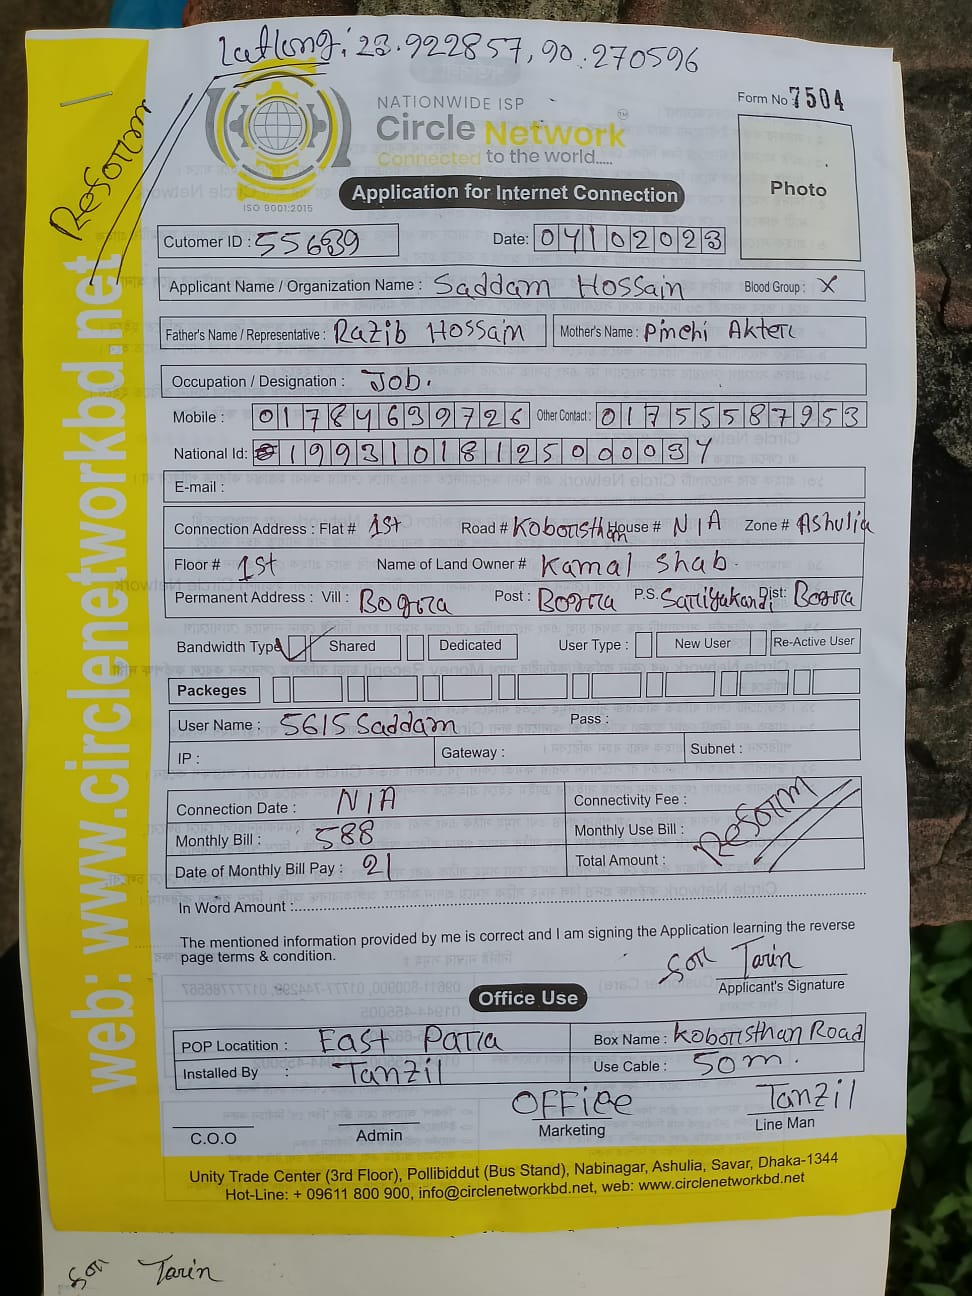 Latlong: 23.922857, 90.270596
Reform
NATIONWIDE ISP
Circle Network™
Connected to the world.....
ISO 9001:2015
Form No 7504
Photo
Application for Internet Connection
Cutomer ID : 55639 Date: 04102023
Applicant Name / Organization Name : Saddam Hossain Blood Group : X
Father's Name / Representative : Razib Hossain Mother's Name : Pinchi Akter
Occupation / Designation : JOB.
Mobile : 01784639726 Other Contact : 01755587953
National Id: 19931018125000034
E-mail :
Connection Address : Flat # 1st Road # Koborsthan House # N/A Zone # Ashulia
Floor # 1st Name of Land Owner # Kamal Shab.
Permanent Address : Vill : Bogra Post : Bogra P.S. Sariyakandi Dist: Bogra
Bandwidth Type Shared Dedicated User Type : New User Re-Active User
Packeges
User Name : 5615Saddam Pass :
IP : Gateway : Subnet :
Connection Date : N/A Connectivity Fee :
Monthly Bill : 588 Monthly Use Bill :
Date of Monthly Bill Pay : 21 Total Amount :
Reform
In Word Amount :
The mentioned information provided by me is correct and I am signing the Application learning the reverse
page terms & condition.
Tarin
Applicant's Signature
Office Use
POP Locatition : East Para Box Name : Koborsthan Road
Installed By : Tanzil Use Cable : 50m.
C.O.O Admin OFFice Marketing Tanzil Line Man
Unity Trade Center (3rd Floor), Pollibiddut (Bus Stand), Nabinagar, Ashulia, Savar, Dhaka-1344
Hot-Line: + 09611 800 900, info@circlenetworkbd.net, web: www.circlenetworkbd.net
web: www.circlenetworkbd.net
Tarin